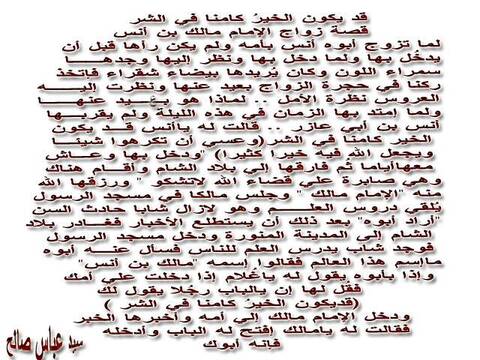 قد يكون الخيرُ كامنا في الشر
قصة زواج الإمام مالك بن أنس
لما تزوج أبوه أنس بأمه ولم يكن رأها قبل أن
يدخُل بها ولما دخل بها ونظر إليها وجدهـــا
سمراء اللون وكان يُريدها بيضاء شقراء فإتخذ
ركنا في حجرة الزواج بعيد عنها ونظرت إليـــه
العروس نظرة الأمل .. لماذا هو بعـــيد عنهـــا
ولما إمتد بها الزمان في هذه الليلة ولم يقربـــها
أنس بن أبي عازر .. قالت له ياأنس قـــد يكون
الخير كامنا في الشر(( عسي أن تكرهوا شيئـا
ويجعل الله فيه خيرا كثيرا)) "ودخل بها وعـاش
معهاأياما ثم سافر إلي بلاد الشام وأقام هناك
وهي صابرة علي قضاء الله لاتشكو" ورزقها الله
منه "الإمام مالك" وجلس مالكا في مسجد الرسول
يلقي دروس العلـــــم وهو لازال شابا حدث السن
"أراد أبوه" بعد ذلك أن يستطلع الأخبار فغـادر بلاد
الشام إلي المدينة المنورة ودخل مسجد الرسول
فوجد شاب يدرس العلم للناس فسأل عنـــه أبوه
ماإسم هذا العالم فقالوا إسمه "مالك بن أنس"
وإذا بأبوه يقول له ياغُلام إذا دخلت علي أمك
فقل لها إن بالباب رجلا يقول لك
(قديكون الخيرُ كامنا في الشر )
ودخل الإمام مالك إلي أمه وأخبرها الخبر
فقالت له يامالك إفتح له الباب وأدخله
فإنه أبوك
سيد عباس صالح